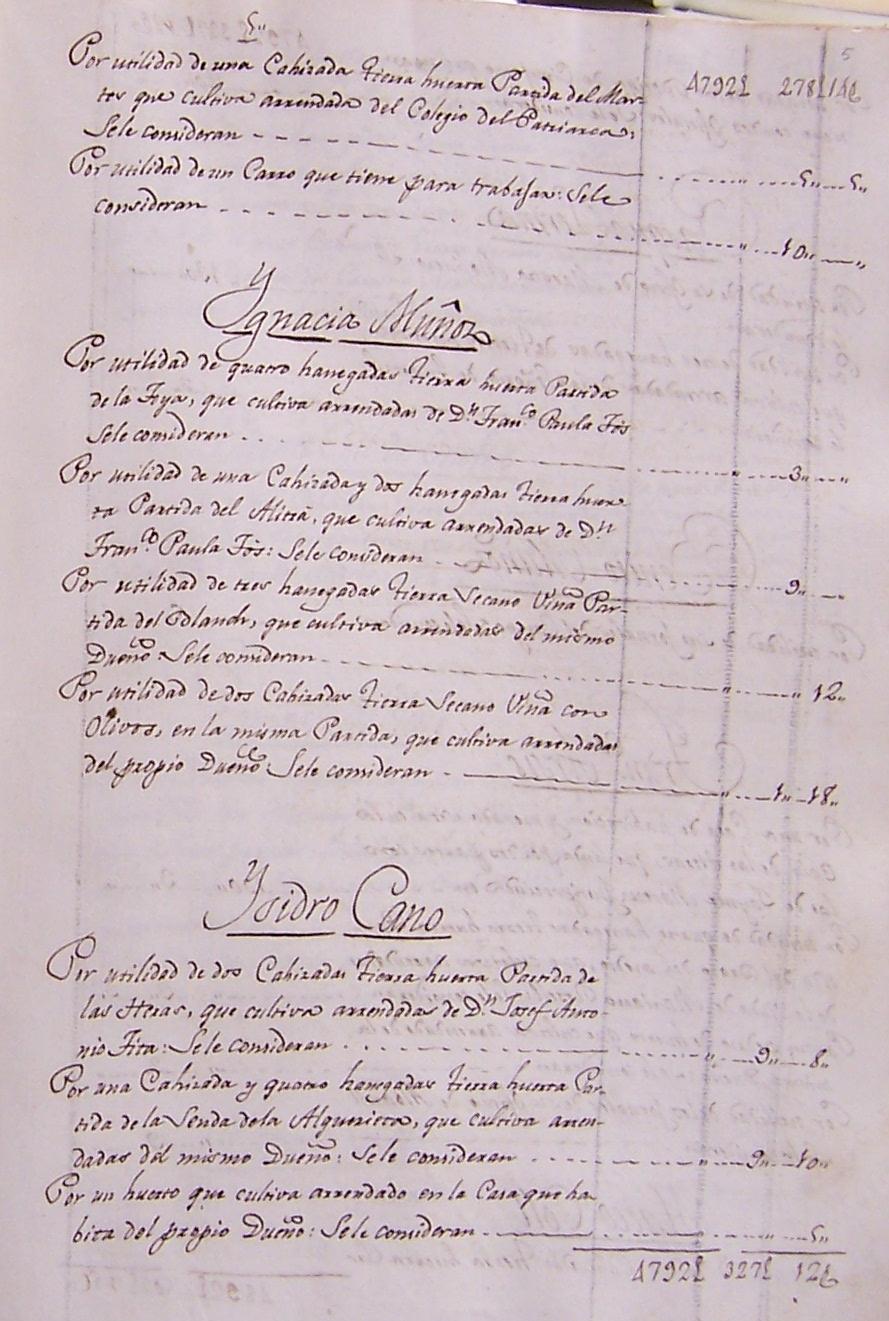 5"
5
Por utilidad de una Cahizada tierra huerta Partida del Mar- 4792£ 278£ 14£
tes que cultiva arrendada del Colegio del Patriarca:
Sele consideran - - - " ... 5" ... 5"
Por utilidad de un Carro que tiene para trabajar: Sele
consideran - - - " ... 10" ... "
Ygnacia Muñoz
Por utilidad de quatro hanegadas tierra huerta Partida
de la Foya, que cultiva arrendadas de Dn. Franco. Paula Fós
Sele consideran ... " ... 3" ... "
Por utilidad de una Cahizada y dos hanegadas tierra huer-
ta Partida del Alitrá, que cultiva arrendadas de Dn.
Franco. Paula Fós: Sele consideran ... " ... 9" ... "
Por utilidad de tres hanegadas tierra Secano Viña Par-
tida del Blanch, que cultiva arrendadas del mismo
Dueño Sele consideran - - - " ... " 12"
Por utilidad de dos Cahizadas tierra Secano Viña con
Olivos, en la misma Partida, que cultiva arrendadas
del propio Dueño: Sele consideran - " ... 1" - 18"
Ysidro Cano
Por utilidad de dos Cahizadas tierra huerta Partida de
las Heras, que cultiva arrendadas de Dn. Josef Anto-
nio Fita: Sele consideran ... " ... 9" ... 8"
Por una Cahizada y quatro hanegadas tierra huerta Par-
tida de la Senda dela Alquerieta, que cultiva arren-
dadas del mismo Dueño: Sele consideran ... " ... 9" ... 10"
Por un huerto que cultiva arrendado en la Casa que ha-
bita del propio Dueño: Sele consideran - " ... " ... 5"
4792£ 327£ 12£